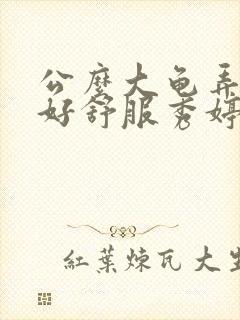 公麽大龟弄
好舒服秀婷
紅葉煉瓦大